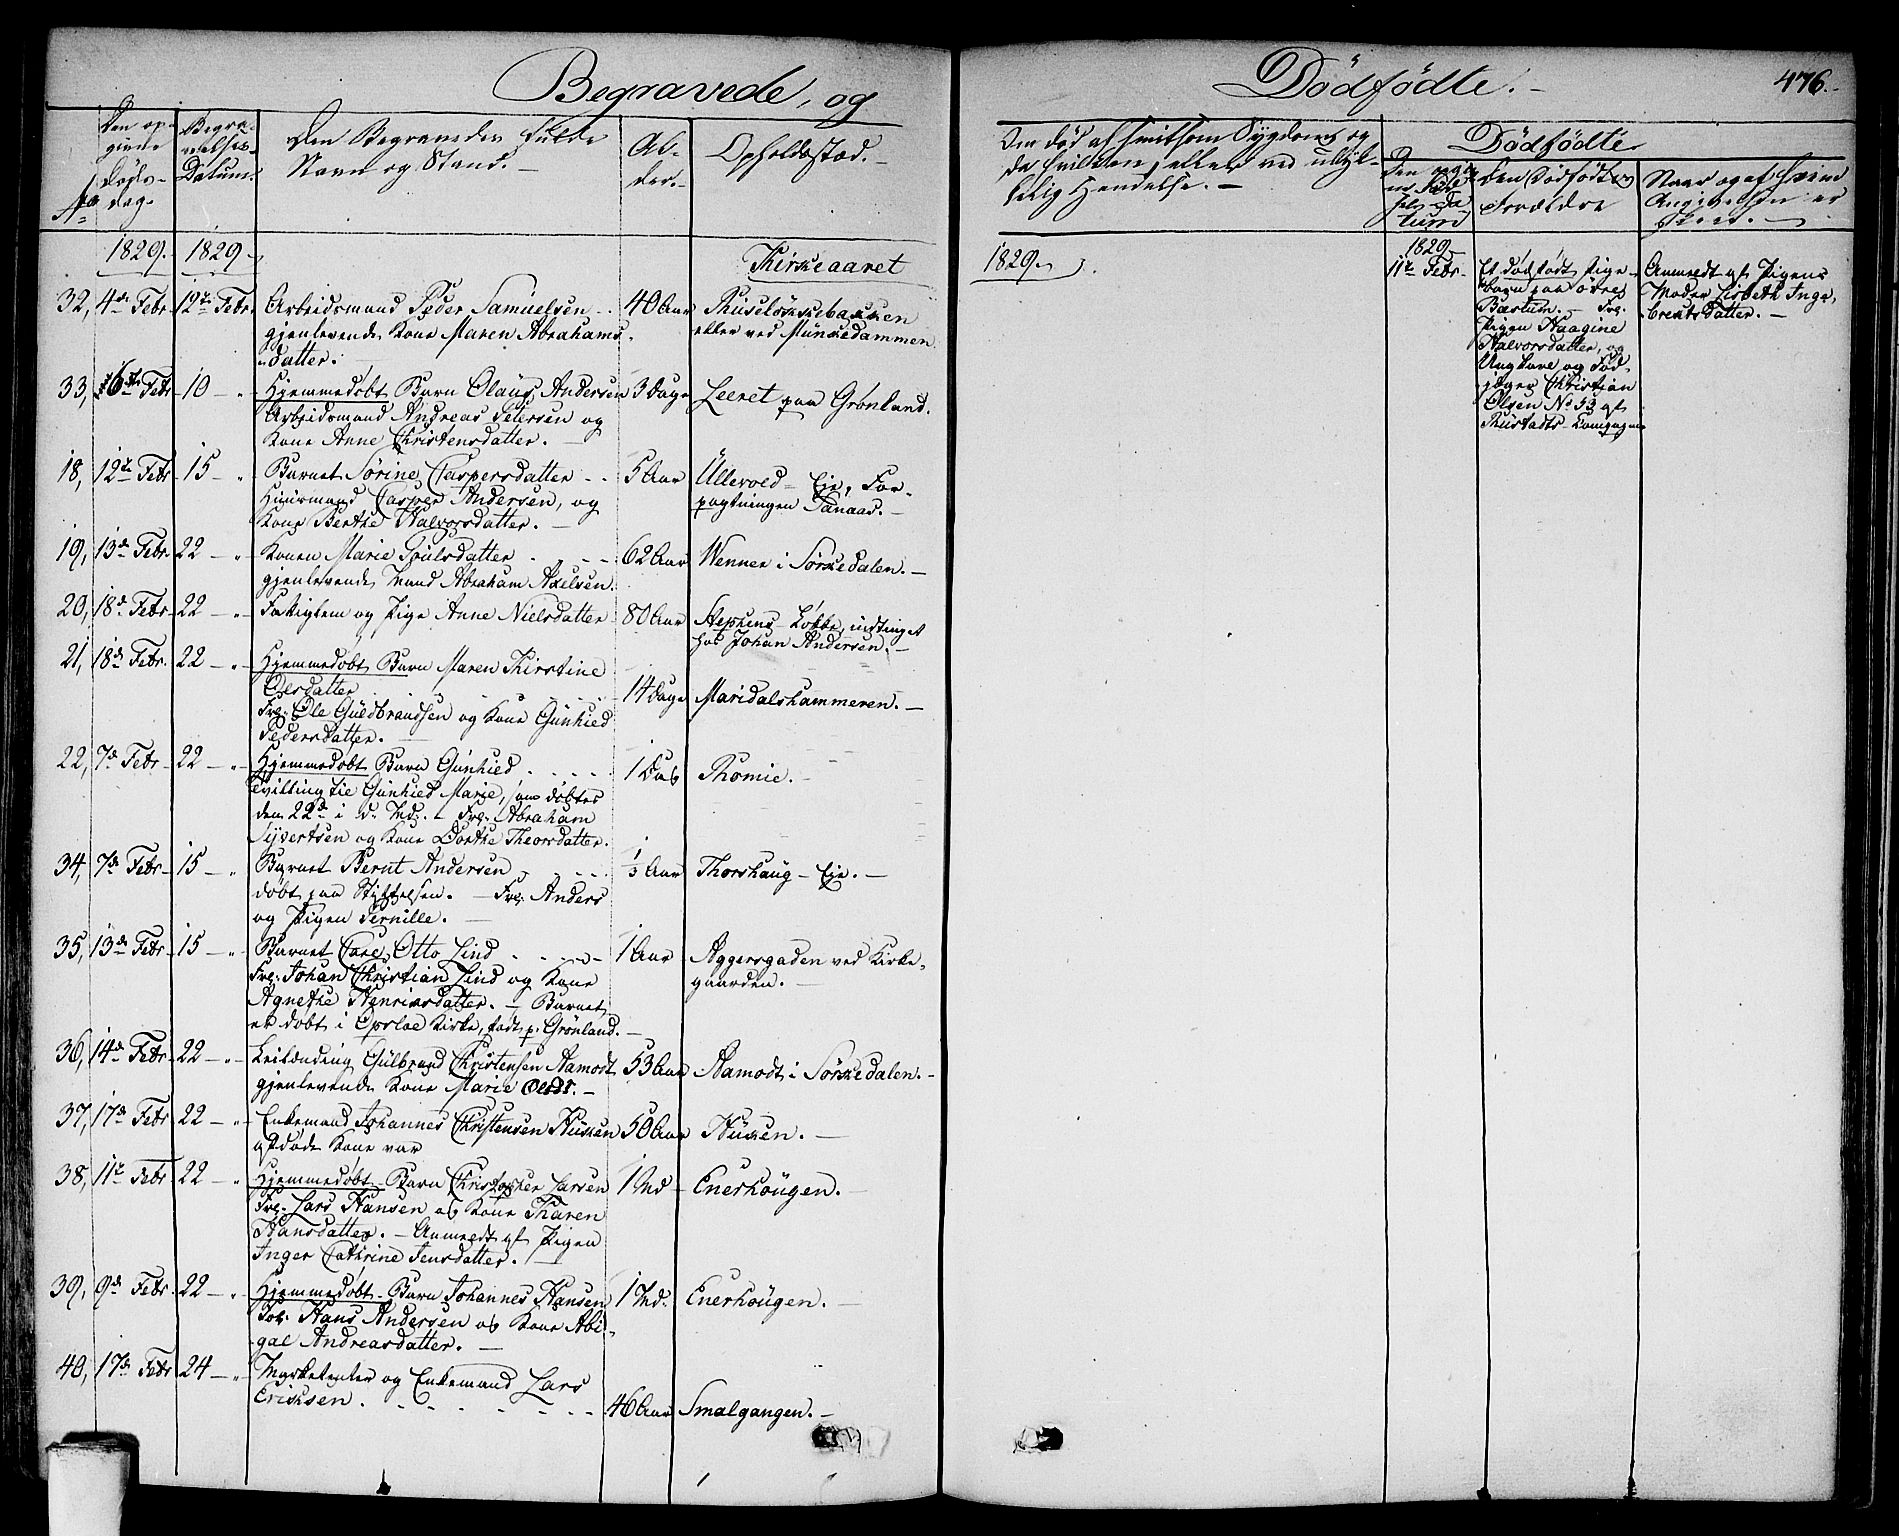 Begravede, og
Dødfødte.
476.
No
Den op-
givne
Døds-
dag.
Begra-
velses-
Datum.
Den Begravedes fulde
Navn og Stand.
Al-
der.
Opholdsstæd.
Om død af smitsom Sygdom, og
da hvilken; eller ved ulyk-
kelig Hendelse.
Dødfødte
Den
Datum
Den Dødfødtes
Forældre
Naar og af hvem
Angivelsen er
skeed.
1829. 1829
Kirkeaaret
1829.
32, 4de Febr. 12te Febr. Arbeidsmand Peder Samuelsen 40 Aar Ruseløkbakken
gjenlevende Kone Maren Abrahams- eller ved Munkedammen
datter.
33, 6te Febr. 10 - " - Hjemmedøbt Barn Olaus Andersen 3 Dage Leeret paa Grønland.
Arbeidsmand Andreas Petersen og
Kone Anne Christensdatter.
18, 12te Febr. 15 - " Barnet Sørine Caspersdatter 5 Aar Ullevold-Eie, For-
Huusmand Casper Andersen, og pagtningen Sanaas.
Kone Berthe Halvorsdatter.
19, 13de Febr. 22 - " Konen Marie Poulsdatter 62 Aar Wenner i Sørkedalen.
gjenlevende Mand Abraham Axelsen.
20, 18de Febr. 22 - " Fattiglem og Pige Anne Nielsdatter 80 Aar Stephens-Løkke, indtinget
hos Johan Andersen.
21, 18de Febr. 22 - " Hjemmedøbt Barn Maren Kirstine
Olesdatter 14 Dage Maridalshammeren.
Fre. Ole Guldbrandsen og Kone Gunhild
Pedersdatter.
22, 7de Febr. 22 - " - Hjemmedøbt Barn Gunhild 1 Dag Thomle.
Tvilling til Gunhild Marie, som døbtes
den 22de i d. Md. - Fre. Abraham
Syvertsen og Kone Dorthe Theorsdatter.
34, 7de Febr. 15 - " Barnet Bernt Andersen 1/3 Aar Thorshaug-Eie.
døbt paa Stiftelsen. - Fre. Anders
og Pigen Pernille.
35, 13de Febr. 15 - " - Barnet Carl Otto Lind 1 Aar Aggersgaden ved Kirke-
Fre. Johan Christian Lind og Kone gaarden.
Agnethe Henriksdatter. - Barnet
er døbt i Opsloe Kirke, født p. Grønland.
36, 14de Febr. 22 - " - Leilænding Gulbrand Christensen Aamodt 53 Aar Aamodt i Sørkedalen.
gjenlevende Kone Marie Olsdr.
37, 17de Febr. 22 - " - Enkemand Johannes Christensen Huusen 50 Aar Huusen.
afdøde Kone var
38, 11te Febr. 22 - " Hjemmedøbt Barn Christopher Larsen 1 Md Enerhougen.
Fre. Lars Hansen og Kone Karen
Hansdatter. - Anmeldt af Pigen
Inger Cathrine Jensdatter.
39, 9de Febr. 22 - " - Hjemmedøbt Barn Johannes Hansen 1 Md. Enerhougen.
For. Hans Andersen og Kone Abi-
gal Andreasdatter.
40, 17de Febr. 24 - " - Marketenter og Enkemand Lars
Eriksen. 46 Aar Smalgangen.
1829
11te Febr.
Et dødfødt Pige-
barn paa øvre
Bæstum. - Fre.
Pigen Haagine
Halvorsdatter, og
Ungkarl og Fod-
jæger Christian
Olsen No 53 af
Compagnie
Anmeldt af Pigens
Moder Lisbeth Inge-
brectsdatter.